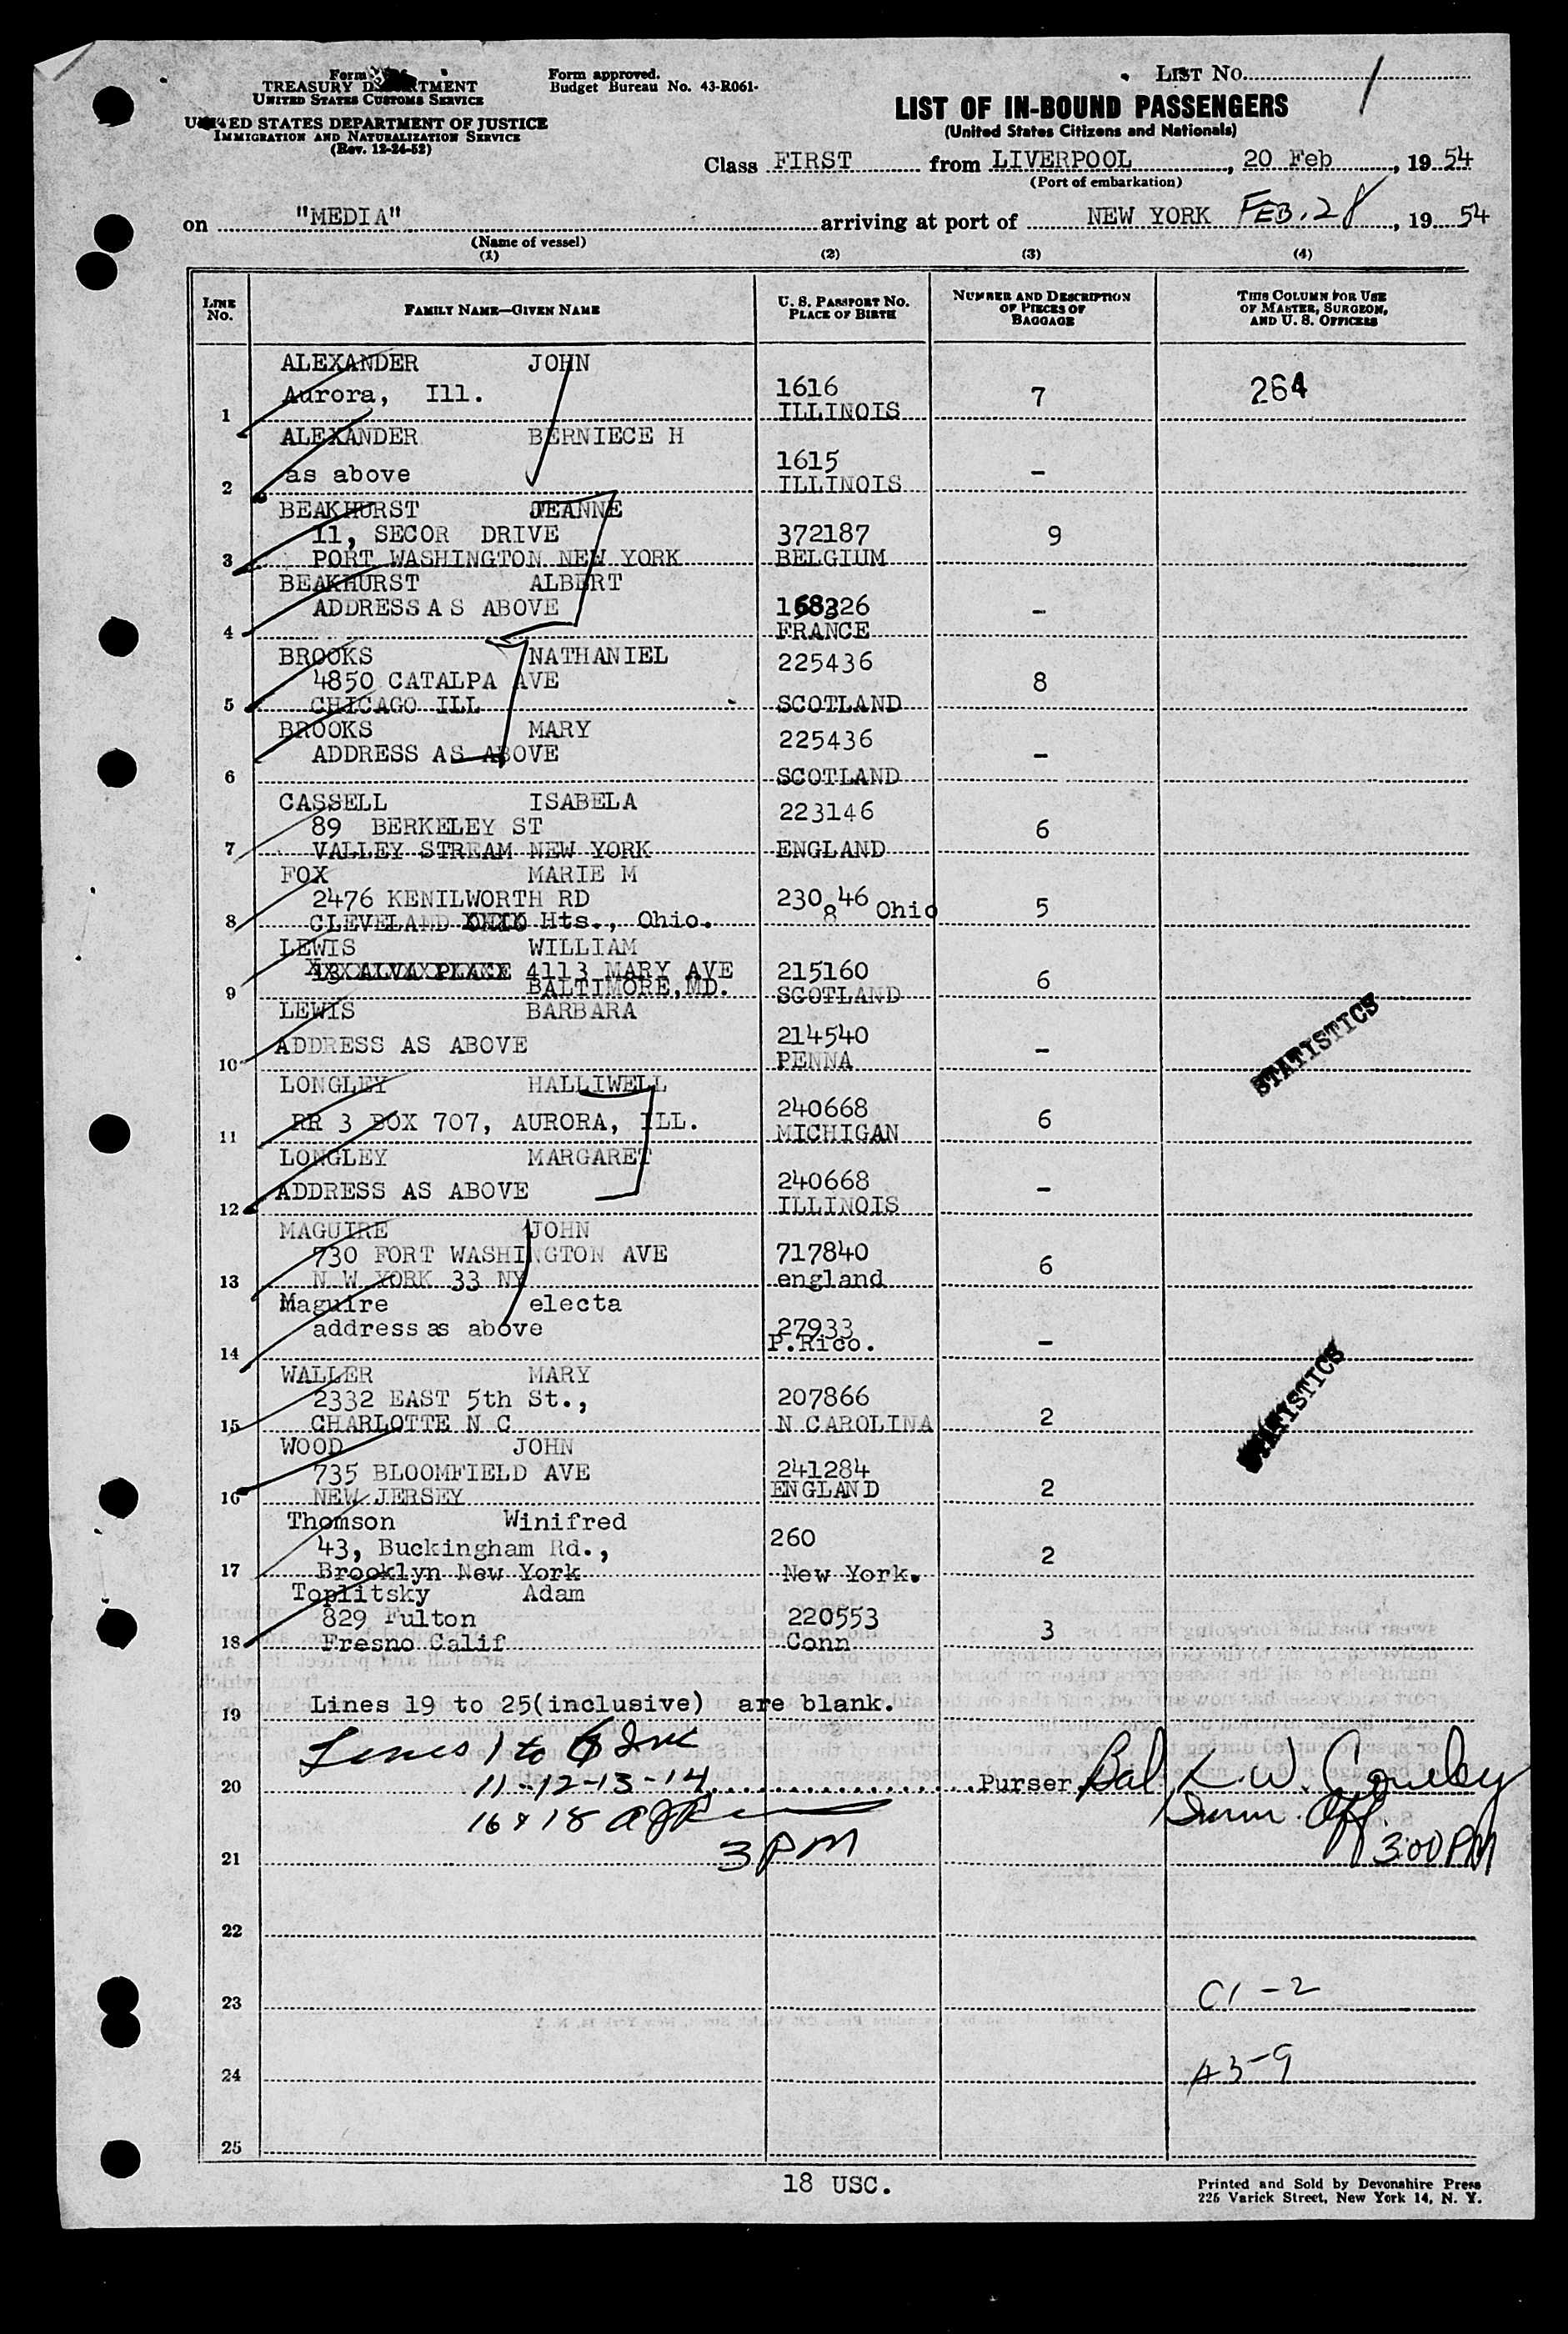 Form
TREASURY DEPARTMENT
UNITED STATES CUSTOMS SERVICE
UNITED STATES DEPARTMENT OF JUSTICE
IMMIGRATION AND NATURALIZATION SERVICE
(Rev. 12-24-52)
Form approved.
Budget Bureau No. 43-R061-
LIST No. 1
LIST OF IN-BOUND PASSENGERS
(United States Citizens and Nationals)
Class FIRST from LIVERPOOL, 20 Feb, 1954
(Port of embarkation)
on "MEDIA" arriving at port of NEW YORK FEB. 28, 1954
(Name of vessel)
(1) (2) (3) (4)
LINE No. FAMILY NAME—GIVEN NAME U. S. PASSPORT No. PLACE OF BIRTH NUMBER AND DESCRIPTION OF PIECES OF BAGGAGE THIS COLUMN FOR USE OF MASTER, SURGEON, AND U. S. OFFICERS
ALEXANDER JOHN
Aurora, Ill. 1616 7 264
1 ILLINOIS
ALEXANDER BERNIECE H
as above 1615 -
2 ILLINOIS
BEAKHURST JEANNE
11, SECOR DRIVE 372187 9
3 PORT WASHINGTON NEW YORK BELGIUM
BEAKHURST ALBERT
ADDRESS AS ABOVE -
4 FRANCE
BROOKS NATHANIEL 225436
4850 CATALPA AVE 8
5 CHICAGO ILL SCOTLAND
BROOKS MARY 225436
ADDRESS AS ABOVE -
6 SCOTLAND
CASSELL ISABELA 223146
89 BERKELEY ST 6
7 VALLEY STREAM NEW YORK ENGLAND
FOX MARIE M
2476 KENILWORTH RD 230846 Ohio 5
8 CLEVELAND Hts., Ohio.
LEWIS WILLIAM
13 ALVA PLACE 4113 MARY AVE 215160 6
9 BALTIMORE, MD. SCOTLAND
LEWIS BARBARA
ADDRESS AS ABOVE 214540 -
10 PENNA
LONGLEY HALLIWELL
RR 3 BOX 707, AURORA, ILL. 240668 6
11 MICHIGAN
LONGLEY MARGARET
ADDRESS AS ABOVE 240668 -
12 ILLINOIS
MAGUIRE JOHN
730 FORT WASHINGTON AVE 717840 6
13 N W YORK 33 NY england
Maguire electa
address as above 27933 -
14 P.Rico.
WALLER MARY
2332 EAST 5th St., 207866 2
15 CHARLOTTE N C N CAROLINA
WOOD JOHN
735 BLOOMFIELD AVE 241284 2
16 NEW JERSEY ENGLAND
Thomson Winifred
43, Buckingham Rd., 260 2
17 Brooklyn New York New York.
Toplitsky Adam
829 Fulton 220553 3
18 Fresno Calif Conn
STATISTICS
STATISTICS
19 Lines 19 to 25(inclusive) are blank.
Lines 1 to 6 Inc
20 11-12-13-14 Purser. Bal
16 & 18
3 PM 3:00 PM
21
22
23 C1-2
24 A3-9
25
18 USC.
Printed and Sold by Devonshire Press
225 Varick Street, New York 14, N. Y.